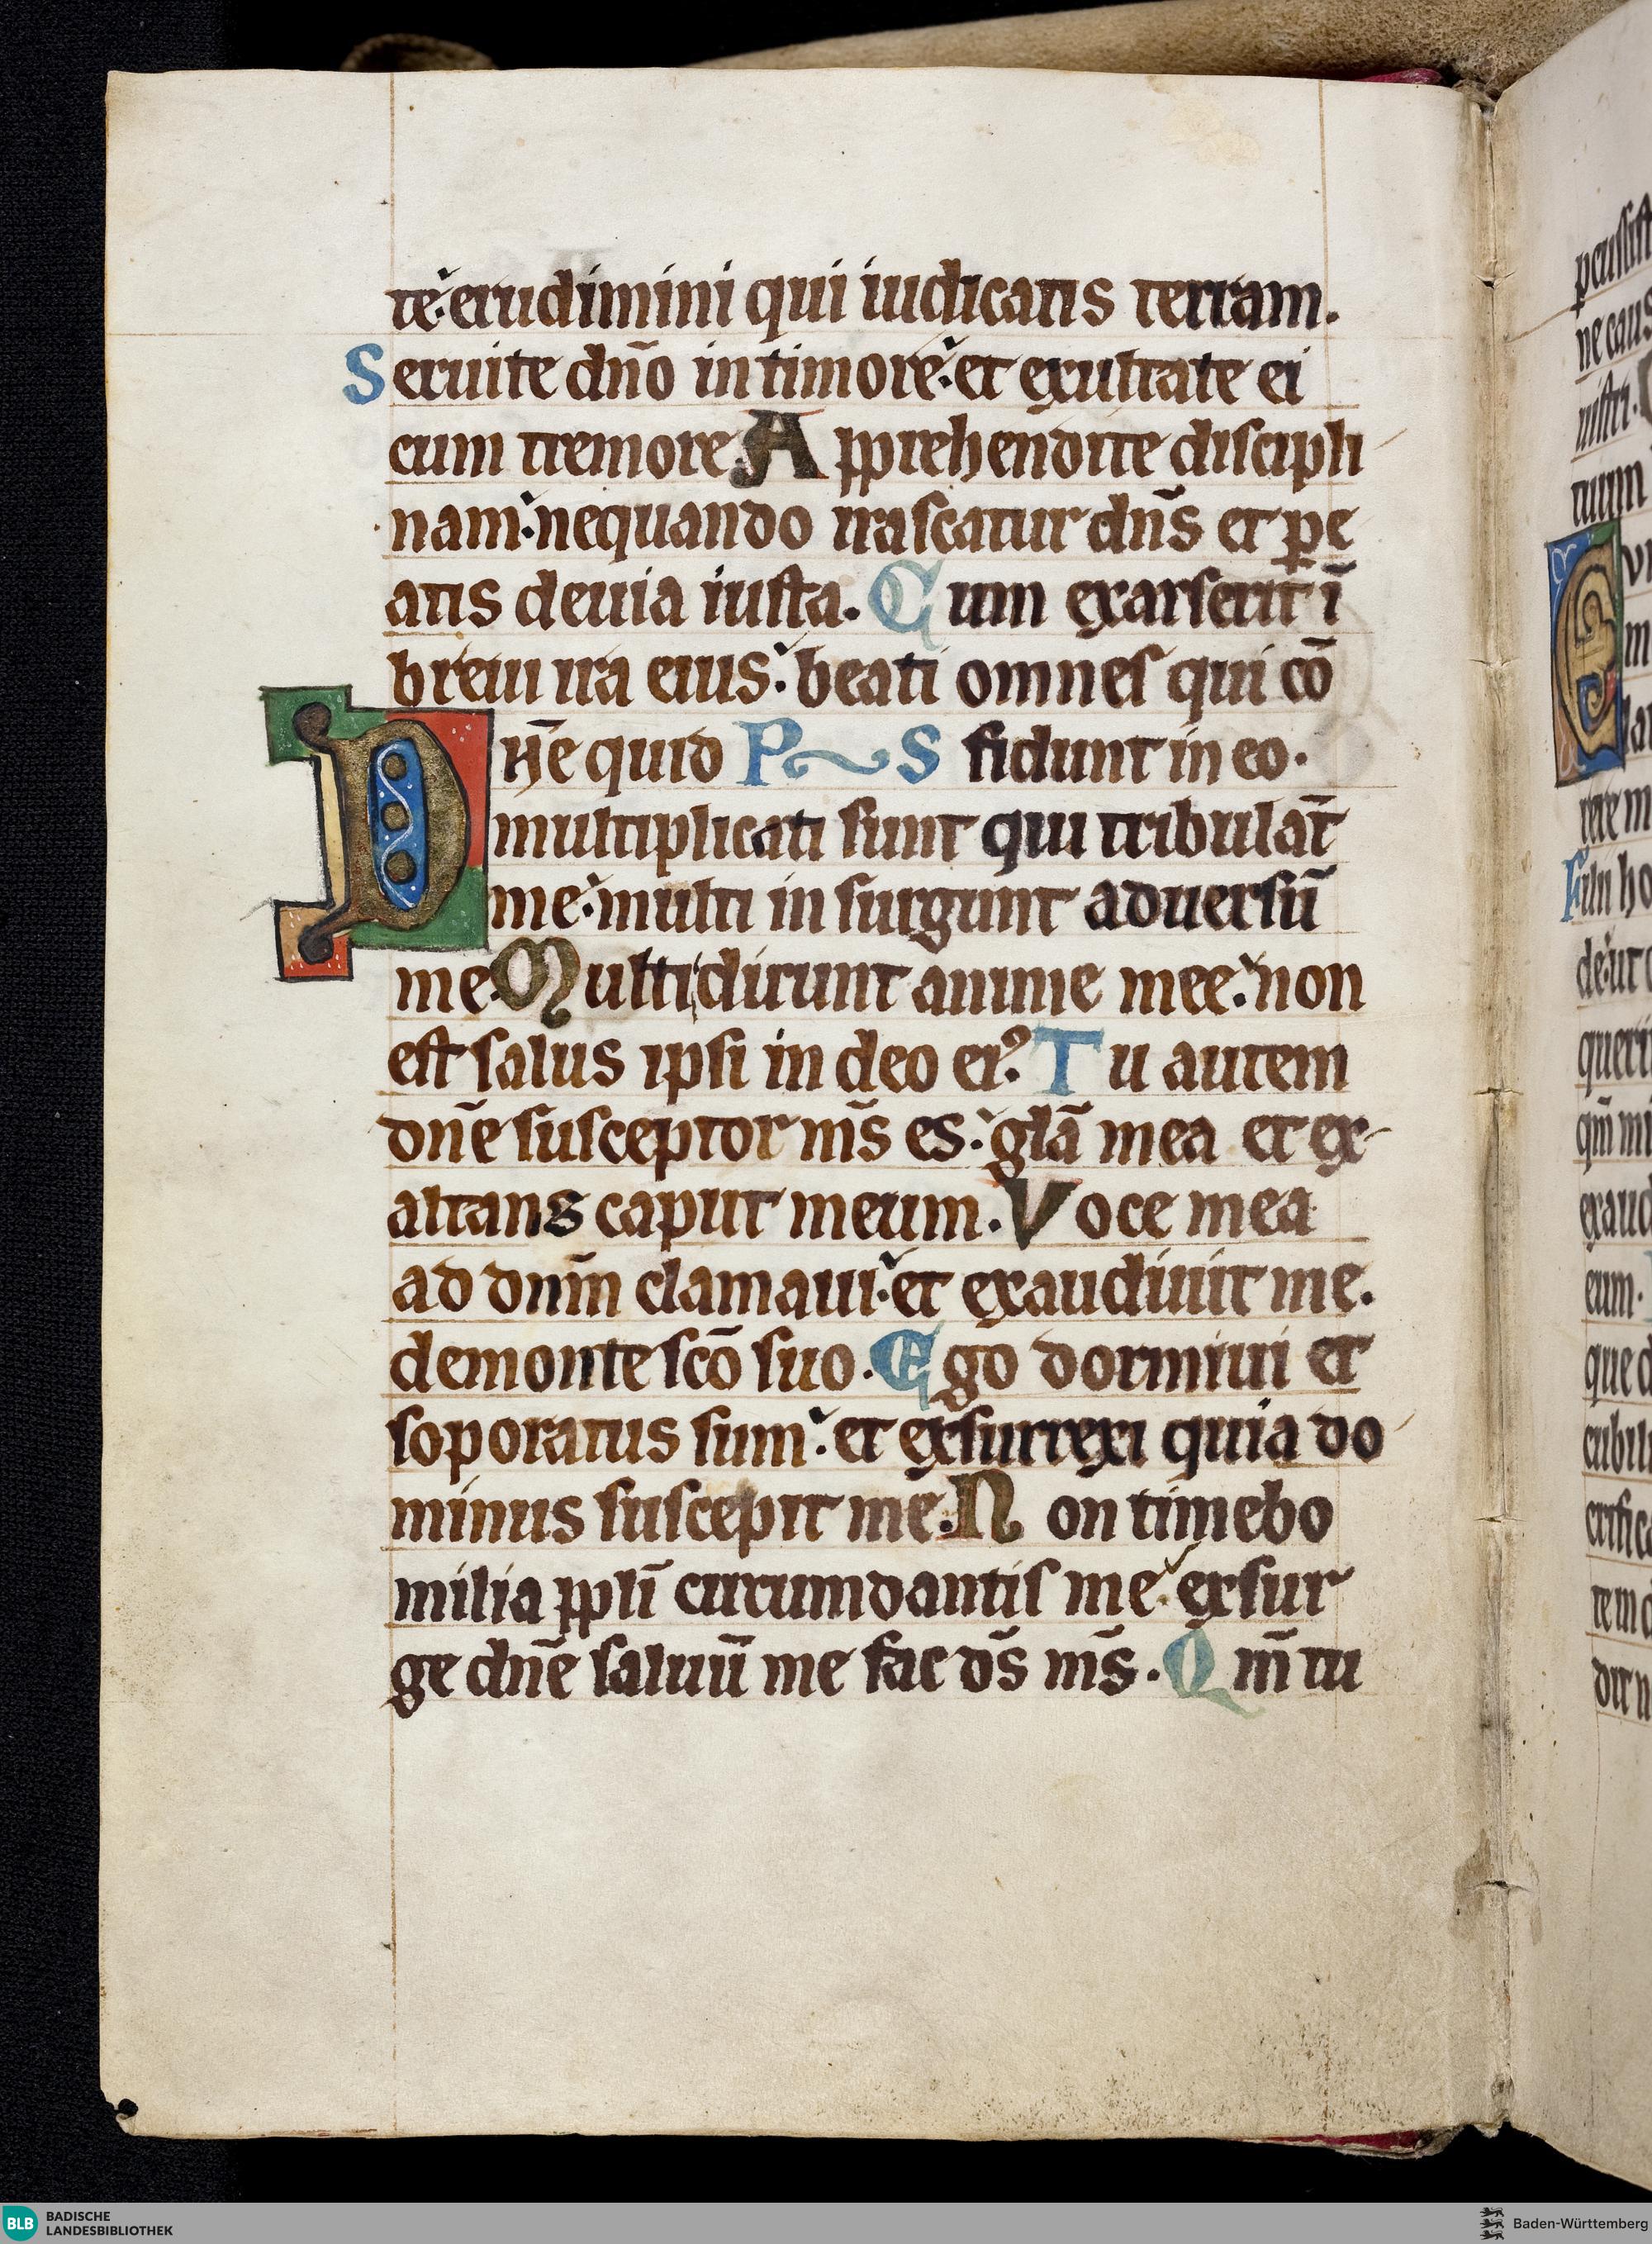 te: erudimini qui iudicatis terram.
Seruite dn̄o in timore: et exultate ei
cum tremore. Apprehendite discipli
nam: nequando irascatur dn̄s et ꝑe
atis de uia iusta. Cum exarserit ī
breui ira eius: beati omnes qui cō
Dn̄e quid PS fidunt in eo.
multiplicati sunt qui tribulāt
me: multi insurgunt aduersū
me. Multi dicunt anime mee: non
est salus ipsi in deo eiꝰ. Tu autem
dn̄e susceptor ms̄ es: glā mea et ex-
altans caput meum. Voce mea
ad dnm̄ clamaui: et exaudiuit me.
de monte scō suo. Ego dormiui et
soporatus sum: et exsurrexi quia do
minus suscepit me. Non timebo
milia ppli̅ circumdantis me: exsur
ge dn̄e saluū me fac ds̄ ms̄. Qm̄ tu
BLB BADISCHE
LANDESBIBLIOTHEK
Baden-Württemberg